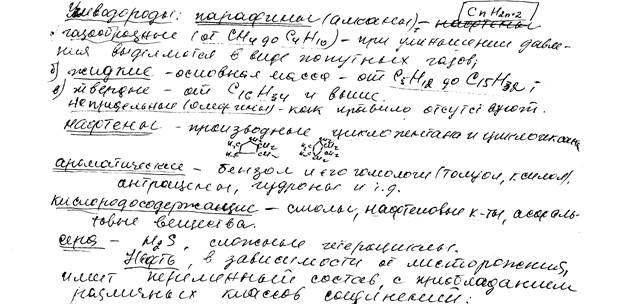 Углеводороды: парафины (алканы) – CnH2n+2
газообразные (от CH4 до C4H10) – при уменьшении давле-
ния выделяются в виде попутных газов;
б) жидкие – основная масса – от C5H12 до C15H32;
в) твердые – от C16H34 и выше.
Непредельные (олефины) – как правило отсутствуют.
нафтены – производные циклопентана и циклогексана
H2C CH2 CH2 H2C CH2
ароматические – бензол и его гомологи (толуол, ксилол),
антрацены, гудроны и т.д.
кислородосодержащие – смолы, нафтеновые к-ты, асфаль-
товые вещества.
сера – H2S, сложные гетероциклы.
Нефть, в зависимости от месторождения,
имеет переменный состав, с преобладанием
различных классов соединений: